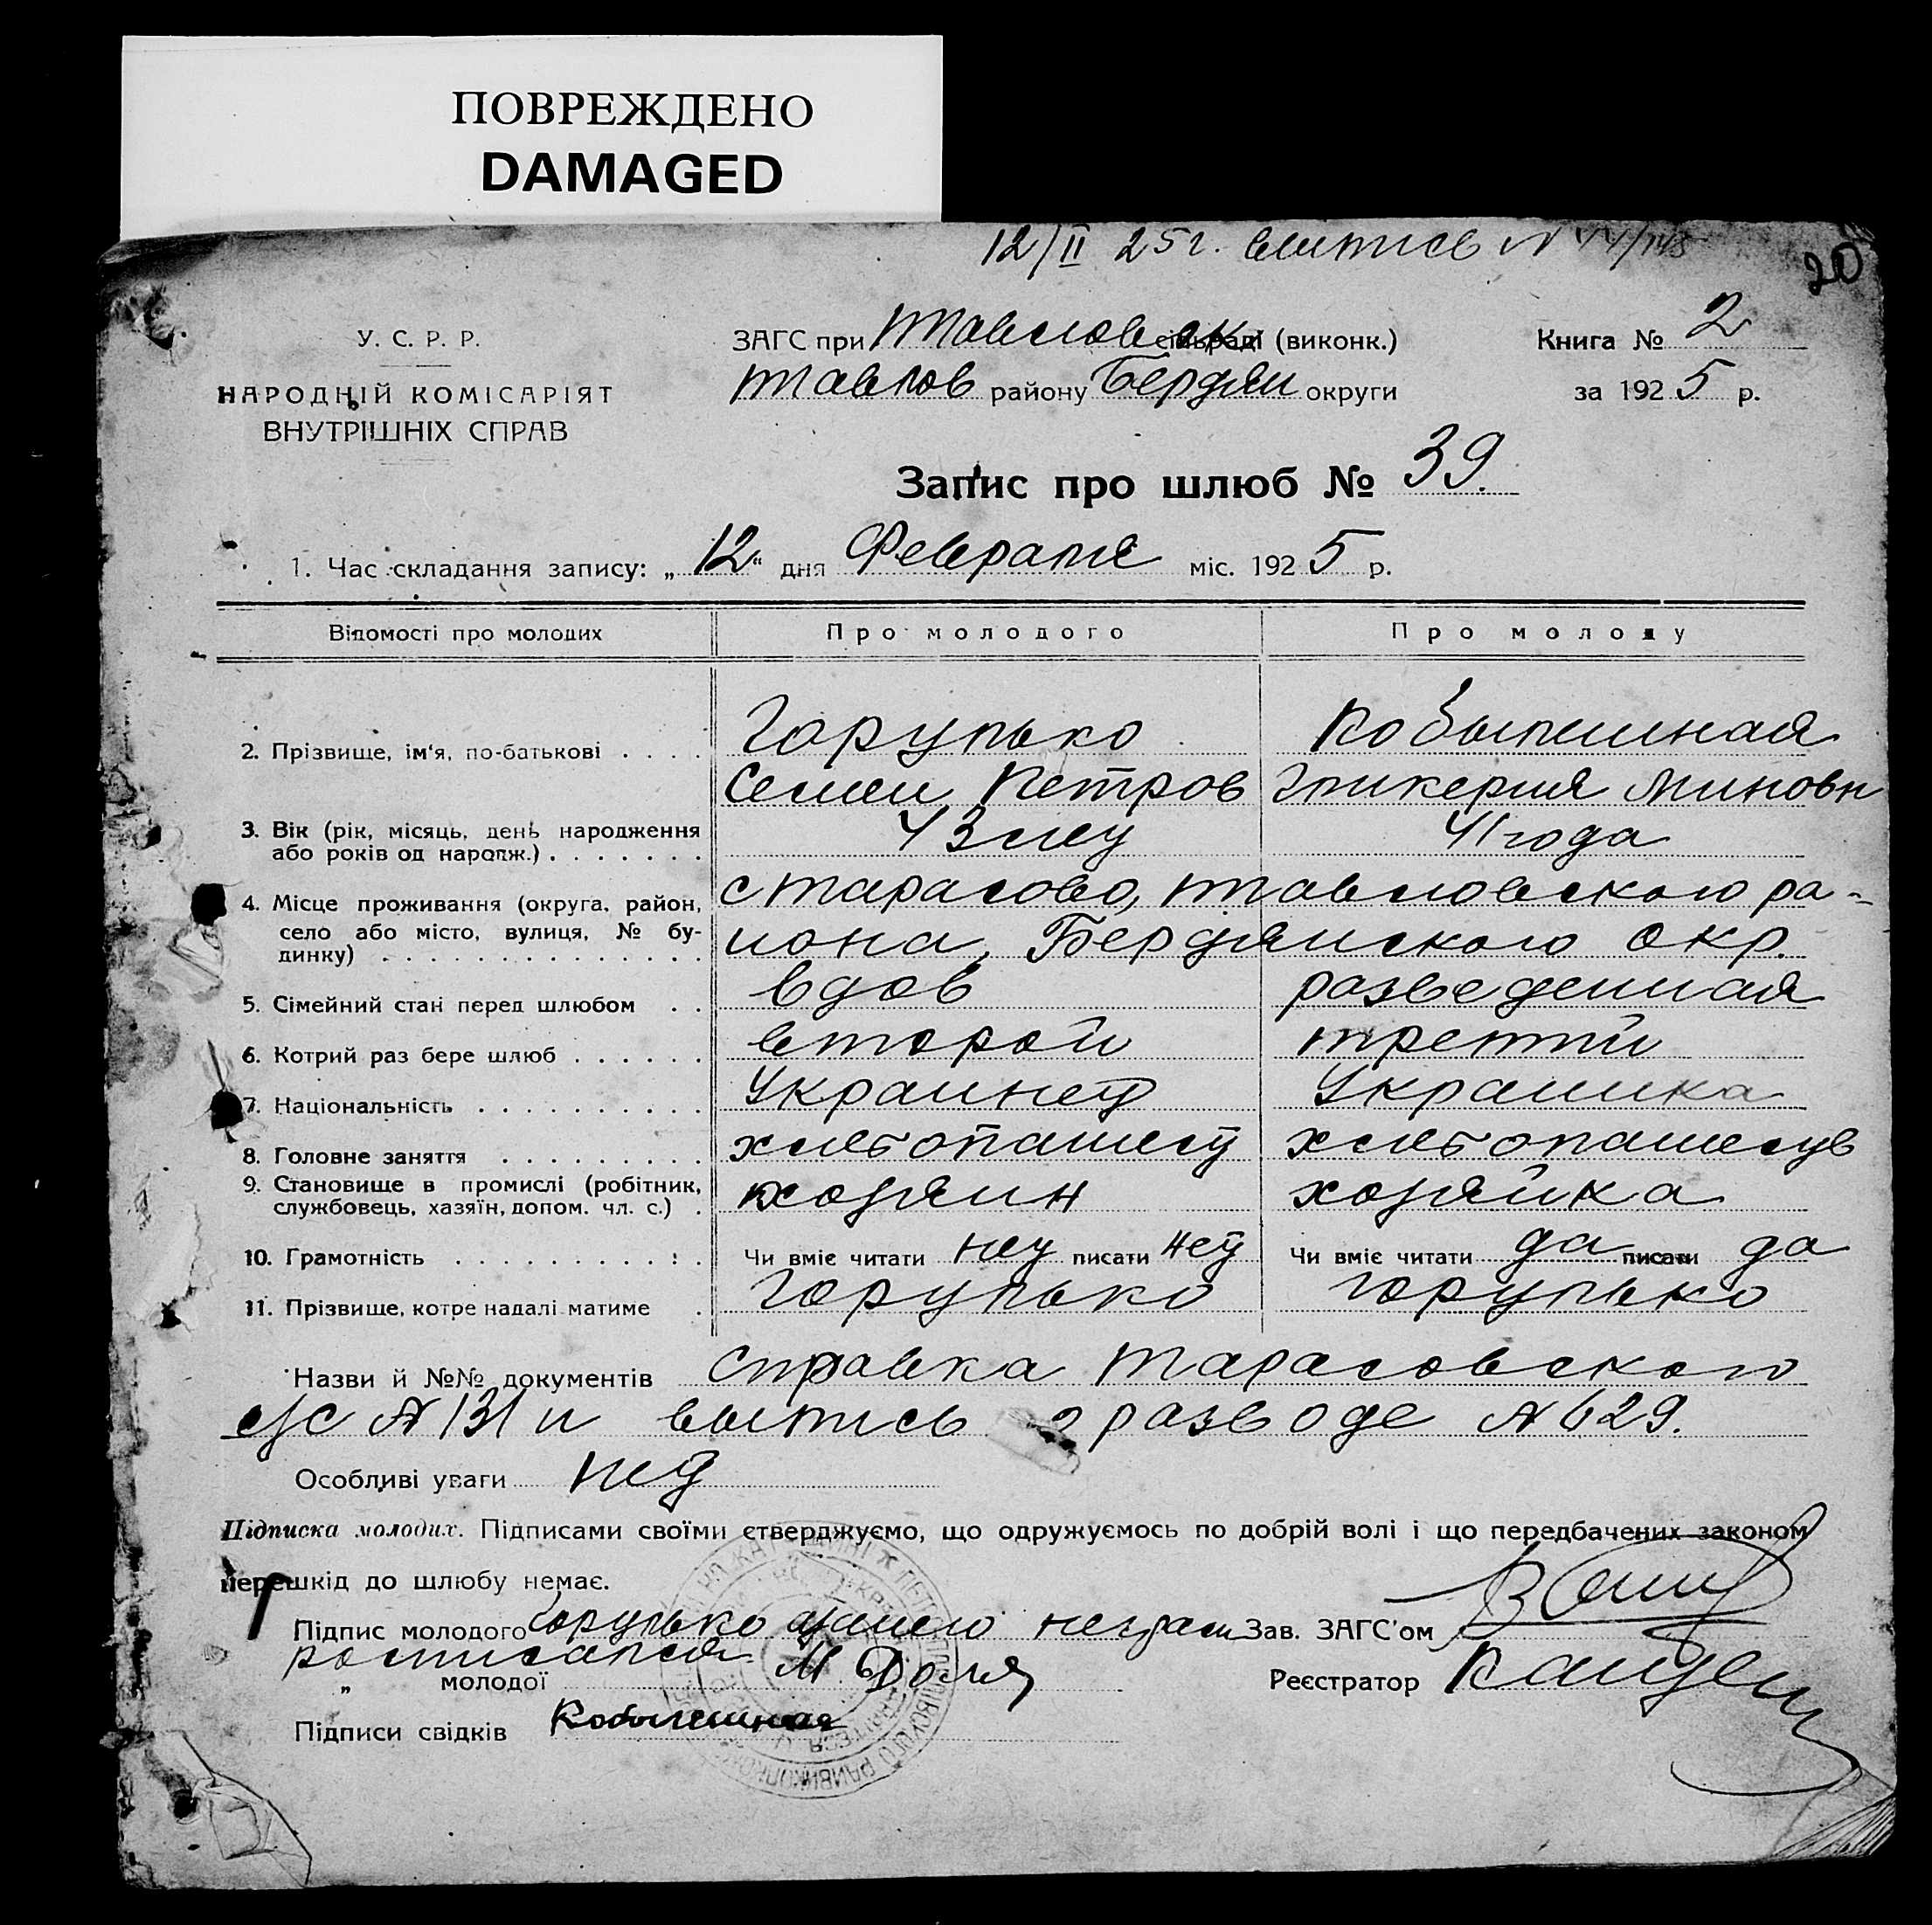 ПОВРЕЖДЕНО
DAMAGED
12/II 25 г. выпись N 44/
20
У. С. Р. Р.
НАРОДНІЙ КОМІСАРІЯТ
ВНУТРІШНІХ СПРАВ
ЗАГС при сільраді (виконк.)
району Бердян округи
Книга № 2
за 1925 р.
Запис про шлюб № 39.
1. Час складання запису: „12“ дня Февраля міс. 1925 р.
Відомості про молодих Про молодого Про молоду
2. Прізвище, ім'я, по-батькові . . . . Горулько Кобылешная
Семен Петров Гликерия Миновн
3. Вік (рік, місяць, день народження
або років од народж.) . . . . . . . 43 лет 41 года
4. Місце проживання (округа, район,
село або місто, вулиця, № бу-
динку) . . . . . . . . . . . . . .
с Тарасово, Павловского ра-
иона, Бердянского окр.
5. Сімейний стан перед шлюбом . . вдов разведенная
6. Котрий раз бере шлюб . . . . . . второй третий
7. Національність . . . . . . . . . . Украинец Украинка
8. Головне заняття . . . . . . . . . хлебопашест хлебопашеств
9. Становище в промислі (робітник,
службовець, хазяїн, допом. чл. с.) . хозяин хозяйка
10. Грамотність . . . . . . . . . : . Чи вміє читати нет писати нет Чи вміє читати да писати да
11. Прізвище, котре надалі матиме . Горулько Горулько
Назви й №№ документів справка Тарасовского
с/с N 131 и выпись о разводе N 629.
Особливі уваги нет
Підписка молодих. Підписами своїми стверджуємо, що одружуємось по добрій волі і що передбачених законом
перешкід до шлюбу немає.
Підпис молодого Горулько неграм Зав. ЗАГС'ом
росписался
„ молодої
Реєстратор
Підписи свідків Кобылешная